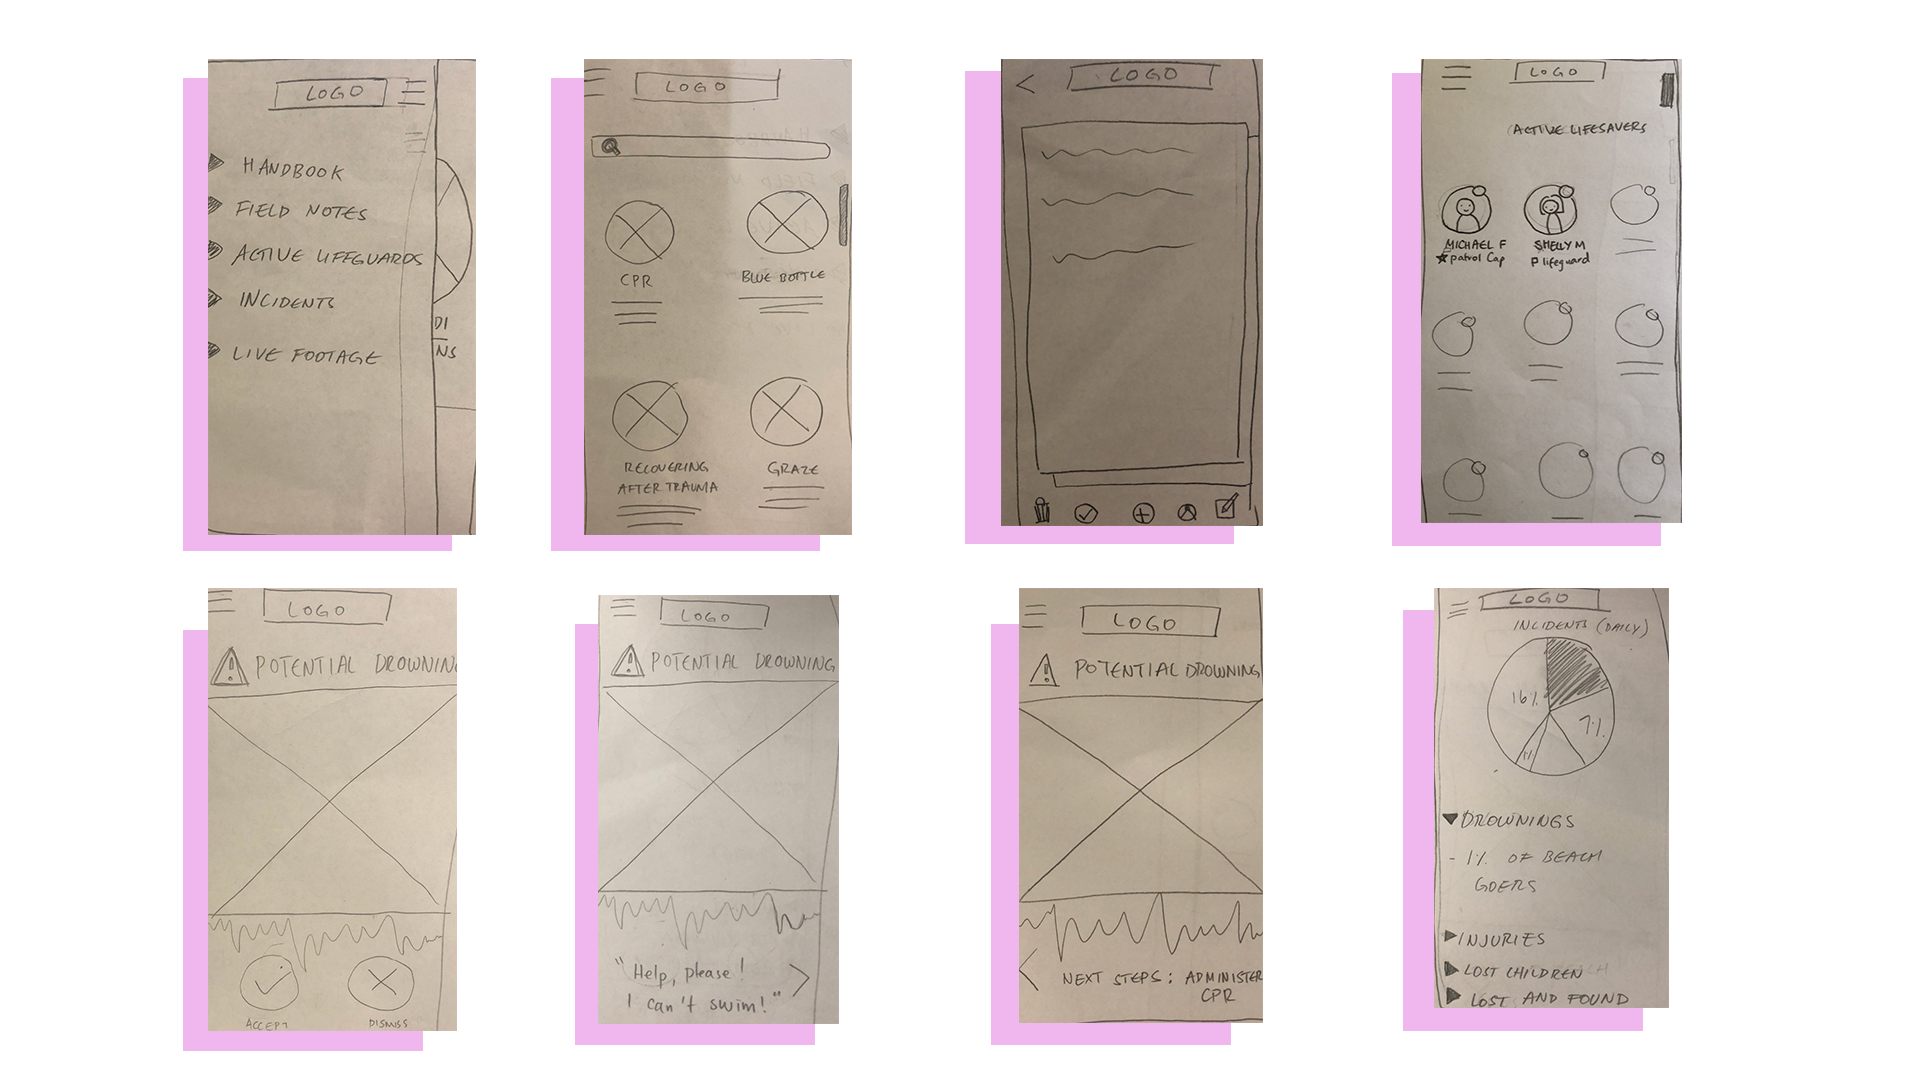 LOGO
HANDBOOK
FIELD NOTES
ACTIVE LIFEGUARDS
INCIDENTS
LIVE FOOTAGE
DI
NS
LOGO
CPR
BLUE BOTTLE
RECOVERING
AFTER TRAUMA
GRAZE
LOGO
LOGO
ACTIVE LIFESAVERS
MICHAEL F
patrol Cap
SHELLY M
P lifeguard
LOGO
POTENTIAL DROWNING
ACCEPT
DISMISS
LOGO
POTENTIAL DROWNING
"Help, please!
I can't swim!"
LOGO
POTENTIAL DROWNING
NEXT STEPS: ADMINISTER
CPR
LOGO
INCIDENTS (DAILY)
16%
7%
1%
DROWNINGS
- 1% OF BEACH
GOERS
INJURIES
LOST CHILDREN
LOST AND FOUND